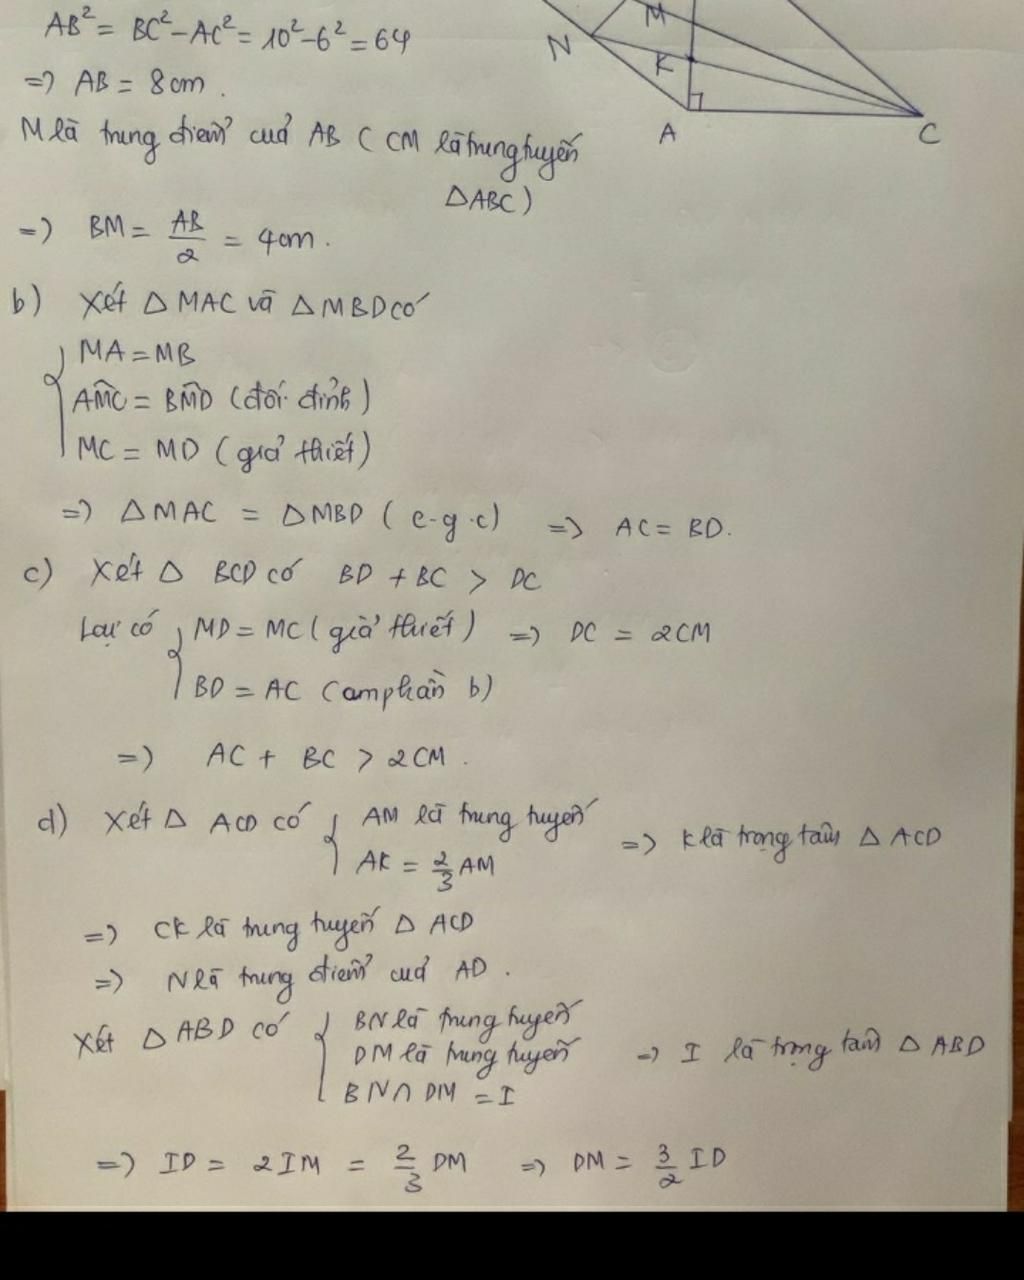 AB² = BC² - AC² = 10² - 6² = 64
M
N
K
=> AB = 8cm.
A
C
M là trung điểm của AB (CM là trung tuyến
ΔABC)
=> BM = AB/2 = 4cm.
b) Xét Δ MAC và Δ MBD có
MA = MB
AMC = BMD (đối đỉnh)
MC = MD (giả thiết)
=> Δ MAC = Δ MBD (c-g.c) => AC = BD.
c) Xét Δ BCD có BD + BC > DC
Lại có MD = MC (giả thiết) => DC = 2CM
BD = AC (cmphần b)
=> AC + BC > 2CM.
d) Xét Δ ACD có AM là trung tuyến
AK = 2/3 AM => K là trọng tâm Δ ACD
=> CK là trung tuyến Δ ACD
=> N là trung điểm của AD.
Xét Δ ABD có BN là trung tuyến
DM là trung tuyến => I là trọng tâm Δ ABD
BN∩DM = I
=> ID = 2IM = 2/3 DM => DM = 3/2 ID